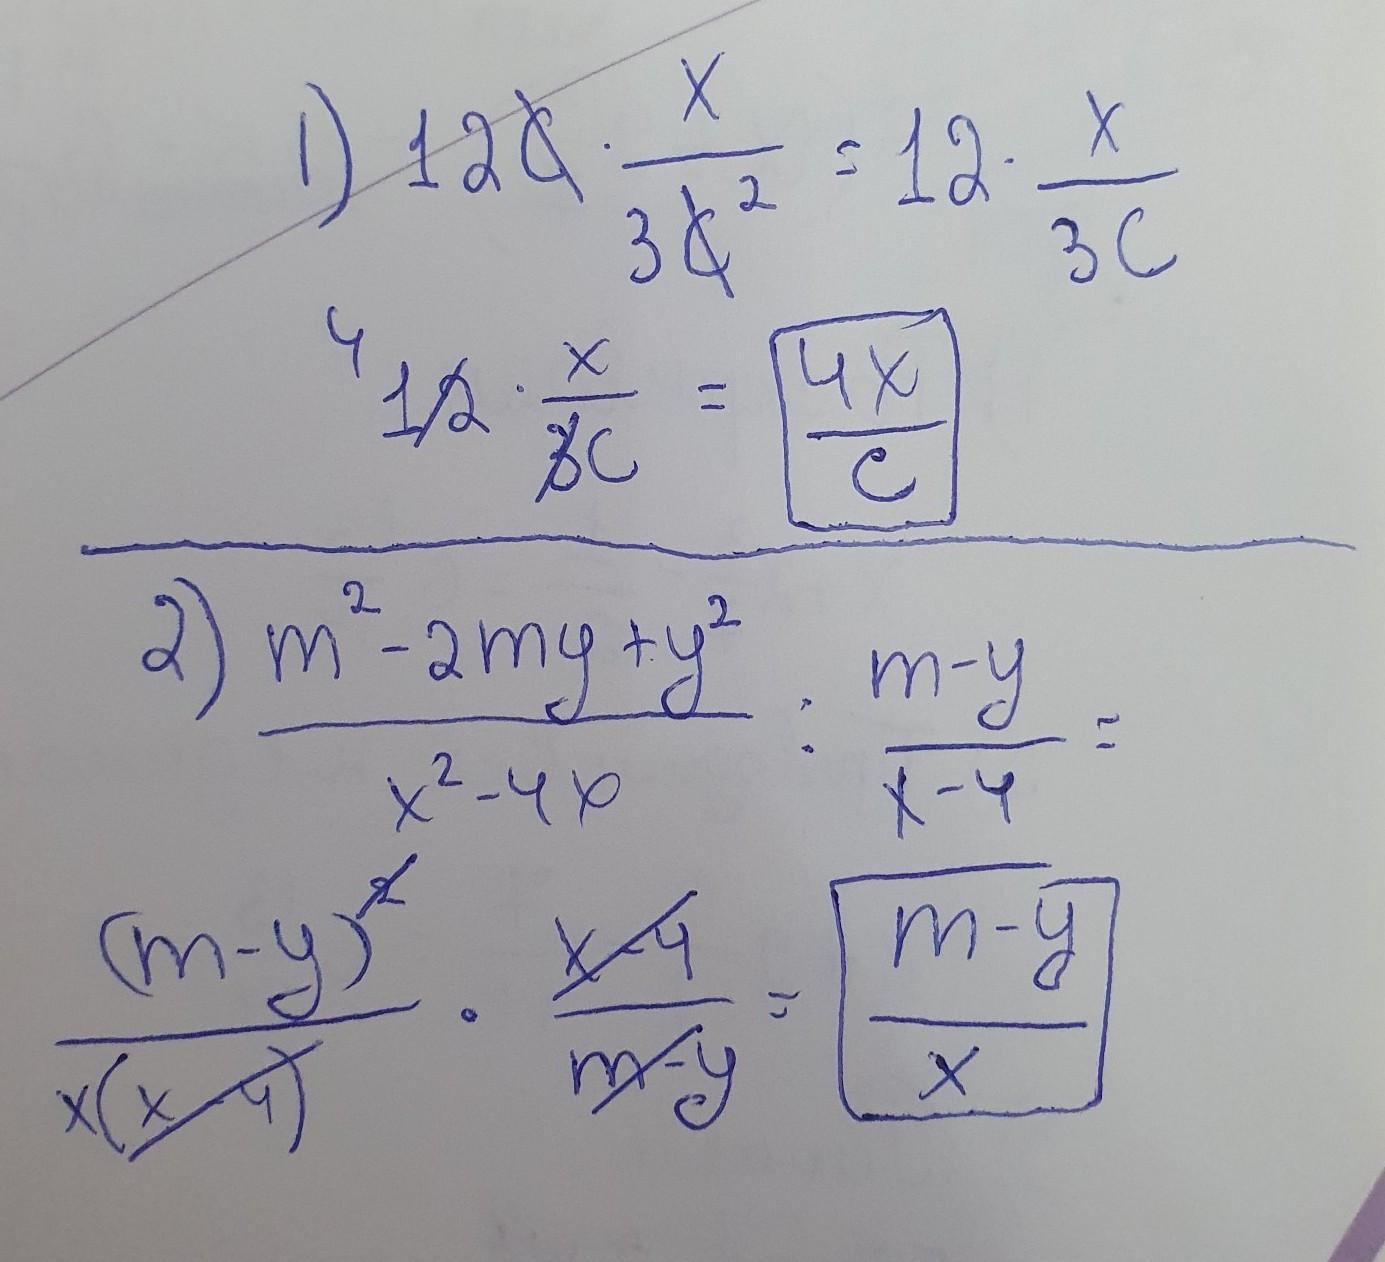 1) 12c · x/3c² = 12 · x/3c
4 12 · x/3c = 4x/c
2) m² - 2my + y²/x² - 4x : m - y/x - 4 =
(m - y)²/x(x - 4) · x - 4/m - y = m - y/x